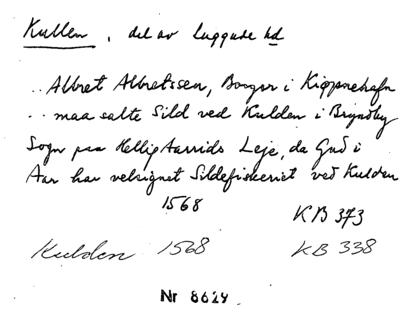 Kullen, del av Luggude hd
.. Albret Albretssen, Borger i Kiøpnehafn
.. maa salte Sild ved Kulden i Brundby
Sogn paa Hellig Aarrids Leje, da Gud i
Aar har velsignet Sildefiskeriet ved Kulden
1568
KB 373
Kulden 1568 KB 338
Nr 8629